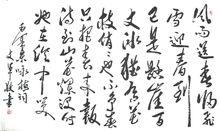 风雨送春归飞
雪迎春到
已是悬崖百
丈冰犹有花
枝俏俏也不争春
只把春来报
待到山花烂漫时
她在丛中笑
毛泽东咏梅词